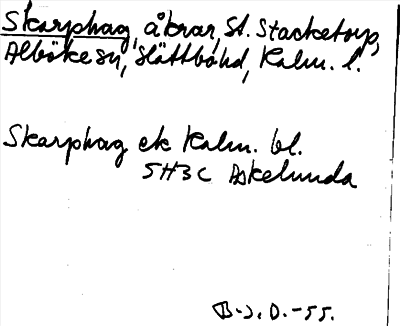 Skarphag, åkrar, St. Stacketorp,
Alböke sn, Slättbohd, Kalm. l.
Skarphag ek Kalm. bl.
5H3C Askelunda
B-J. D. -55.